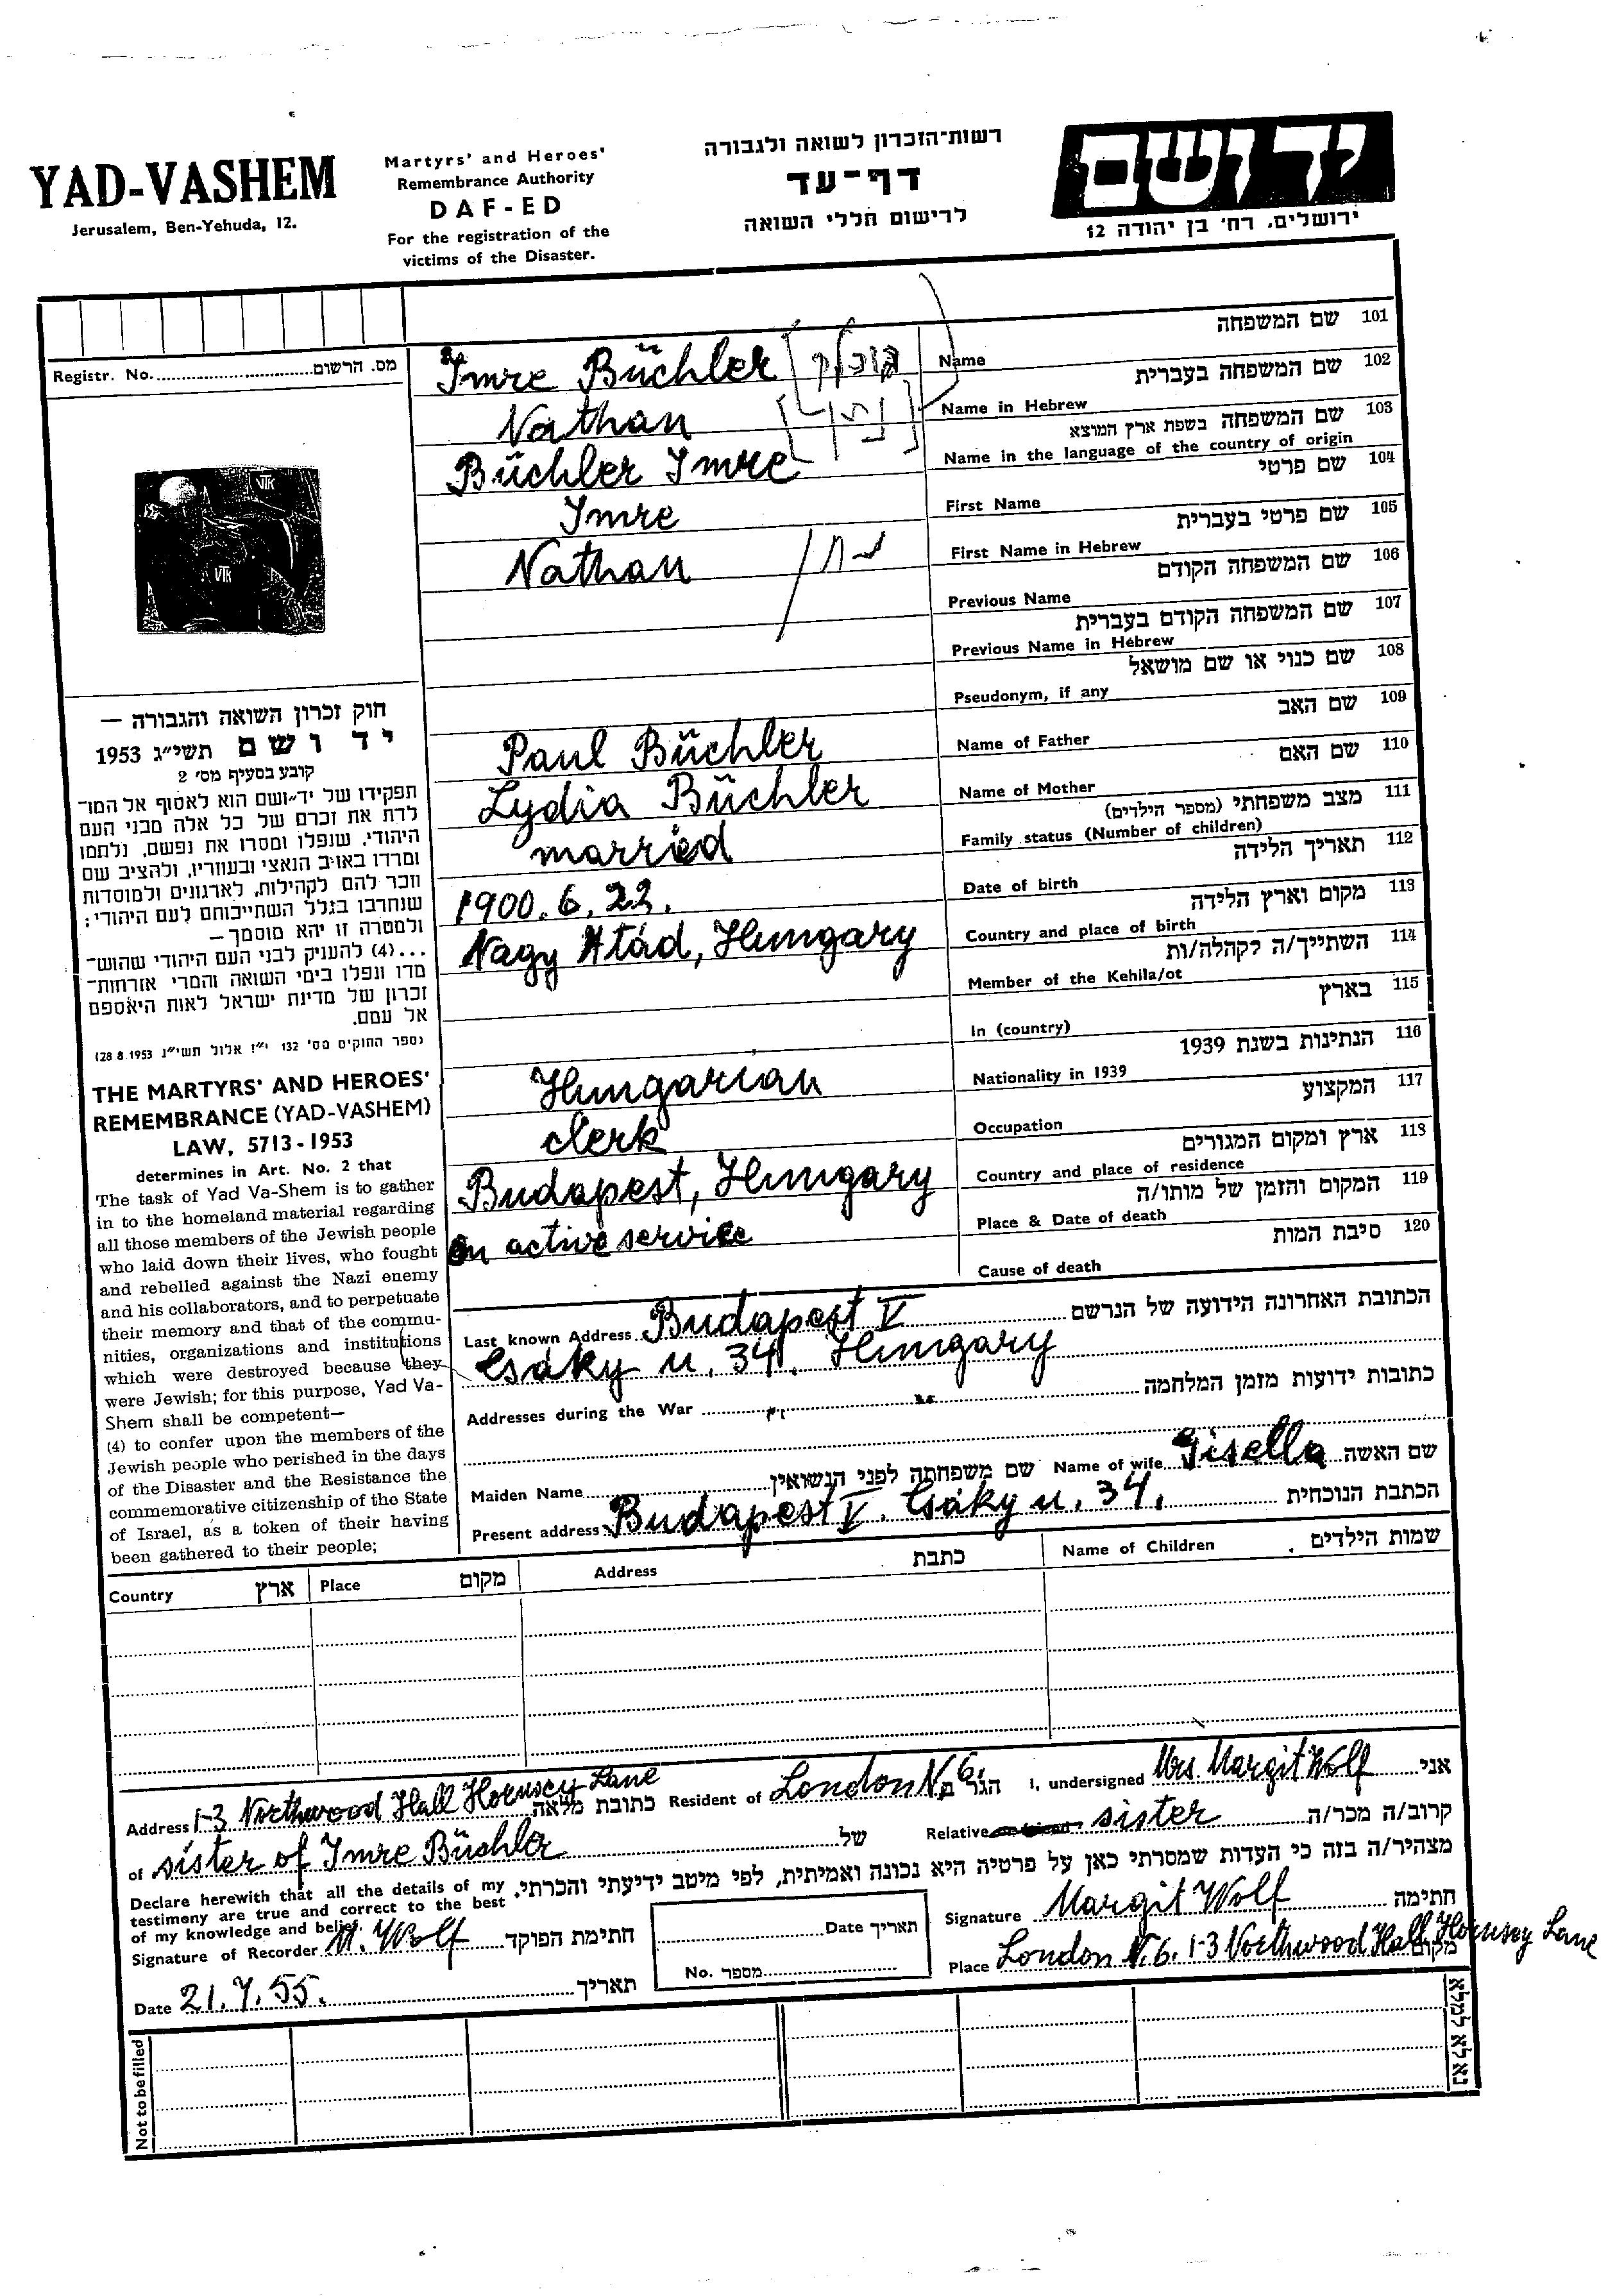 YAD-VASHEM
Jerusalem, Ben-Yehuda, 12.
Martyrs' and Heroes'
Remembrance Authority
DAF-ED
For the registration of the
victims of the Disaster.
רשות־הזכרון לשואה ולגבורה
דף־עד
לרישום חללי השואה
ידושם
ירושלים, רח' בן יהודה 12
Registr. No. מס. הרשום
Imre Büchler Name שם המשפחה 101
Nathan Name in Hebrew שם המשפחה בעברית 102
Büchler Imre Name in the language of the country of origin שם המשפחה בשפת ארץ המוצא 103
Imre First Name שם פרטי 104
Nathan נתן First Name in Hebrew שם פרטי בעברית 105
Previous Name שם המשפחה הקודם 106
Previous Name in Hebrew שם המשפחה הקודם בעברית 107
Pseudonym, if any שם כנוי או שם מושאל 108
Paul Büchler Name of Father שם האב 109
Lydia Büchler Name of Mother שם האם 110
married Family status (Number of children) מצב משפחתי (מספר הילדים) 111
1900. 6. 22. Date of birth תאריך הלידה 112
Nagy Atád, Hungary Country and place of birth מקום וארץ הלידה 113
Member of the Kehila/ot השתייך/ה לקהלה/ות 114
In (country) בארץ 115
Hungarian Nationality in 1939 הנתינות בשנת 1939 116
clerk Occupation המקצוע 117
Budapest, Hungary Country and place of residence ארץ ומקום המגורים 118
On active service Place & Date of death המקום והזמן של מותו/ה 119
Cause of death סיבת המות 120
חוק זכרון השואה והגבורה —
יד ושם תשי״ג 1953
קובע בסעיף מס' 2
תפקידו של יד־ושם הוא לאסוף אל המו־
לדת את זכרם של כל אלה מבני העם
היהודי, שנפלו ומסרו את נפשם, נלחמו
ומרדו באויב הנאצי ובעוזריו, ולהציב שם
וזכר להם לקהילות, לארגונים ולמוסדות
שנחרבו בגלל השתייכותם לעם היהודי;
ולמטרה זו יהא מוסמך—
...(4) להעניק לבני העם היהודי שהוש־
מדו ונפלו בימי השואה והמרי אזרחות־
זכרון של מדינת ישראל לאות היאספם
אל עמם.
(ספר החוקים מס' 132 י״ז אלול תשי״ג 28.8.1953)
THE MARTYRS' AND HEROES'
REMEMBRANCE (YAD-VASHEM)
LAW, 5713-1953
determines in Art. No. 2 that
The task of Yad Va-Shem is to gather
in to the homeland material regarding
all those members of the Jewish people
who laid down their lives, who fought
and rebelled against the Nazi enemy
and his collaborators, and to perpetuate
their memory and that of the commu-
nities, organizations and institutions
which were destroyed because they
were Jewish; for this purpose, Yad Va-
Shem shall be competent—
(4) to confer upon the members of the
Jewish people who perished in the days
of the Disaster and the Resistance the
commemorative citizenship of the State
of Israel, as a token of their having
been gathered to their people;
Last known Address Budapest V הכתובת האחרונה הידועה של הנרשם
Csáky u. 34. Hungary
Addresses during the War כתובות ידועות מזמן המלחמה
Maiden Name שם משפחתה לפני הנשואין Name of wife Gisella שם האשה
Present address Budapest V. Csáky u. 34. הכתבת הנוכחית
Country ארץ Place מקום Address כתבת Name of Children שמות הילדים
Address 1-3 Northwood Hall Hornsey Lane כתובת מלאה Resident of London N.6. הגר ב I, undersigned Mrs. Margit Wolf אני
of sister of Imre Büchler של Relative sister קרוב/ה מכר/ה
מצהיר/ה בזה כי העדות שמסרתי כאן על פרטיה היא נכונה ואמיתית, לפי מיטב ידיעתי והכרתי.
Declare herewith that all the details of my
testimony are true and correct to the best
of my knowledge and belief.
Signature of Recorder M. Wolf חתימת הפוקד
Date תאריך
No. מספר
Signature Margit Wolf חתימה
Place London N.6. 1-3 Northwood Hall Hornsey Lane מקום
Date 21.7.55. תאריך
Not to be filled
נא לא למלא